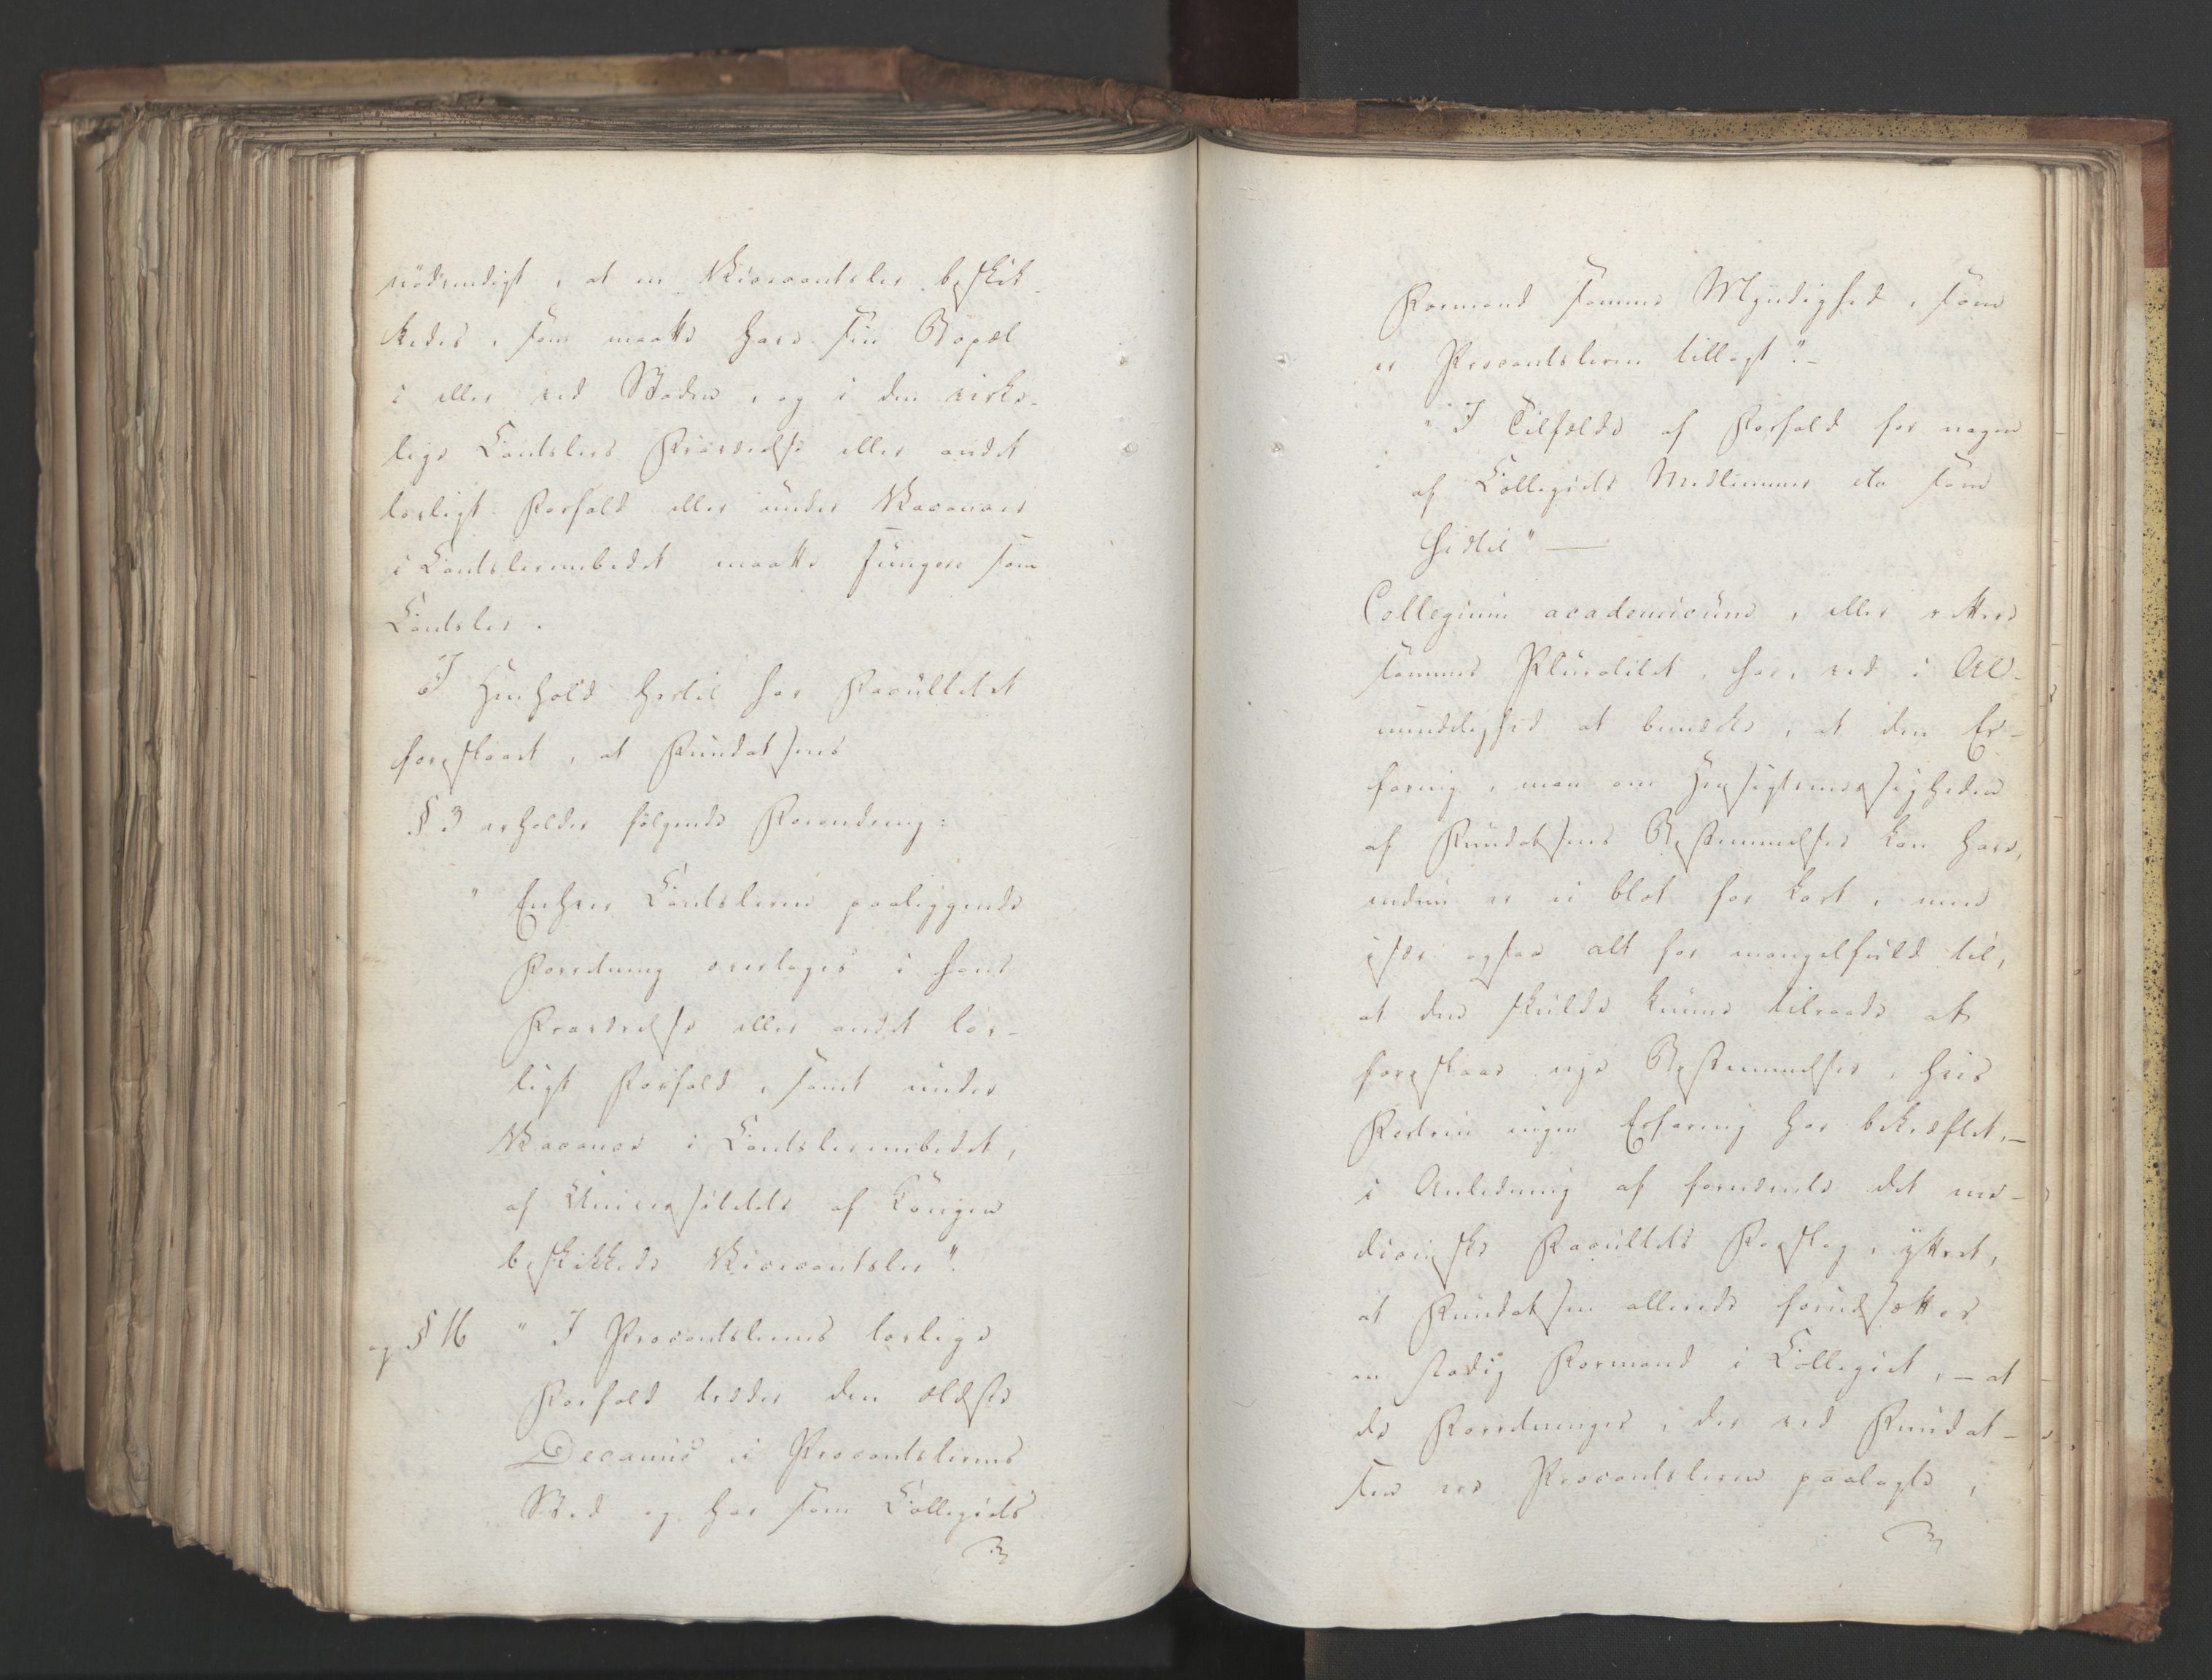 nödvendigt, at en Vicecantsler beskik-
kedes, som maatte have sin Bopæl
i eller ved Staden, og i den virke-
lige Cantslers Fraværelse eller andet
lovligt Forfald eller under Vacancer
i Cantslerembedet maatte fungere som
Cantsler.
I Henhold hertil har Facultetet
foreslaaet, at Fundatsens
§ 3 erholder følgende Forandring:
" Enhver Cantsleren paaliggende
Forretning overtages i hans
Fraværelse eller andet lov-
ligt Forfald, samt under
Vacance i Cantslerembedet,
af Universitetets af Kongen
beskikkede Vicecantsler".
og § 16 " I Procantslerens lovlige
Forfald træder den ældste
Decanus i Procantslerens
Sted og har som Collegiets
Formand samme Myndighed, som
er Procantsleren tillagt".-
" I Tilfælde af Forfald for nogen
af Collegiets Medlemmer etc som
hidtil" —
Collegium academicum, eller rettere
sammes Pluralitet, har, ved i Al-
mindelighed at bemærke, at den Er-
faring, man om Hensigtsmæssigheden
af Fundatsens Bestemmelser kan have,
endnu er ei blot for kort, men
især ogsaa alt for mangelfuld til,
at den skulde kunne tilraade at
foreslaae nye Bestemmelser, hvis
Fortrin ingen Erfaring har bekræftet,-
i Anledning af fornævnte det me-
dicinske Facultets Forslag, yttret,
at Fundatsen allerede forudsætter
en stadig Formand i Collegiet, - at
de Forretninger, der ved Fundat-
sen ere Procantsleren paalagte,